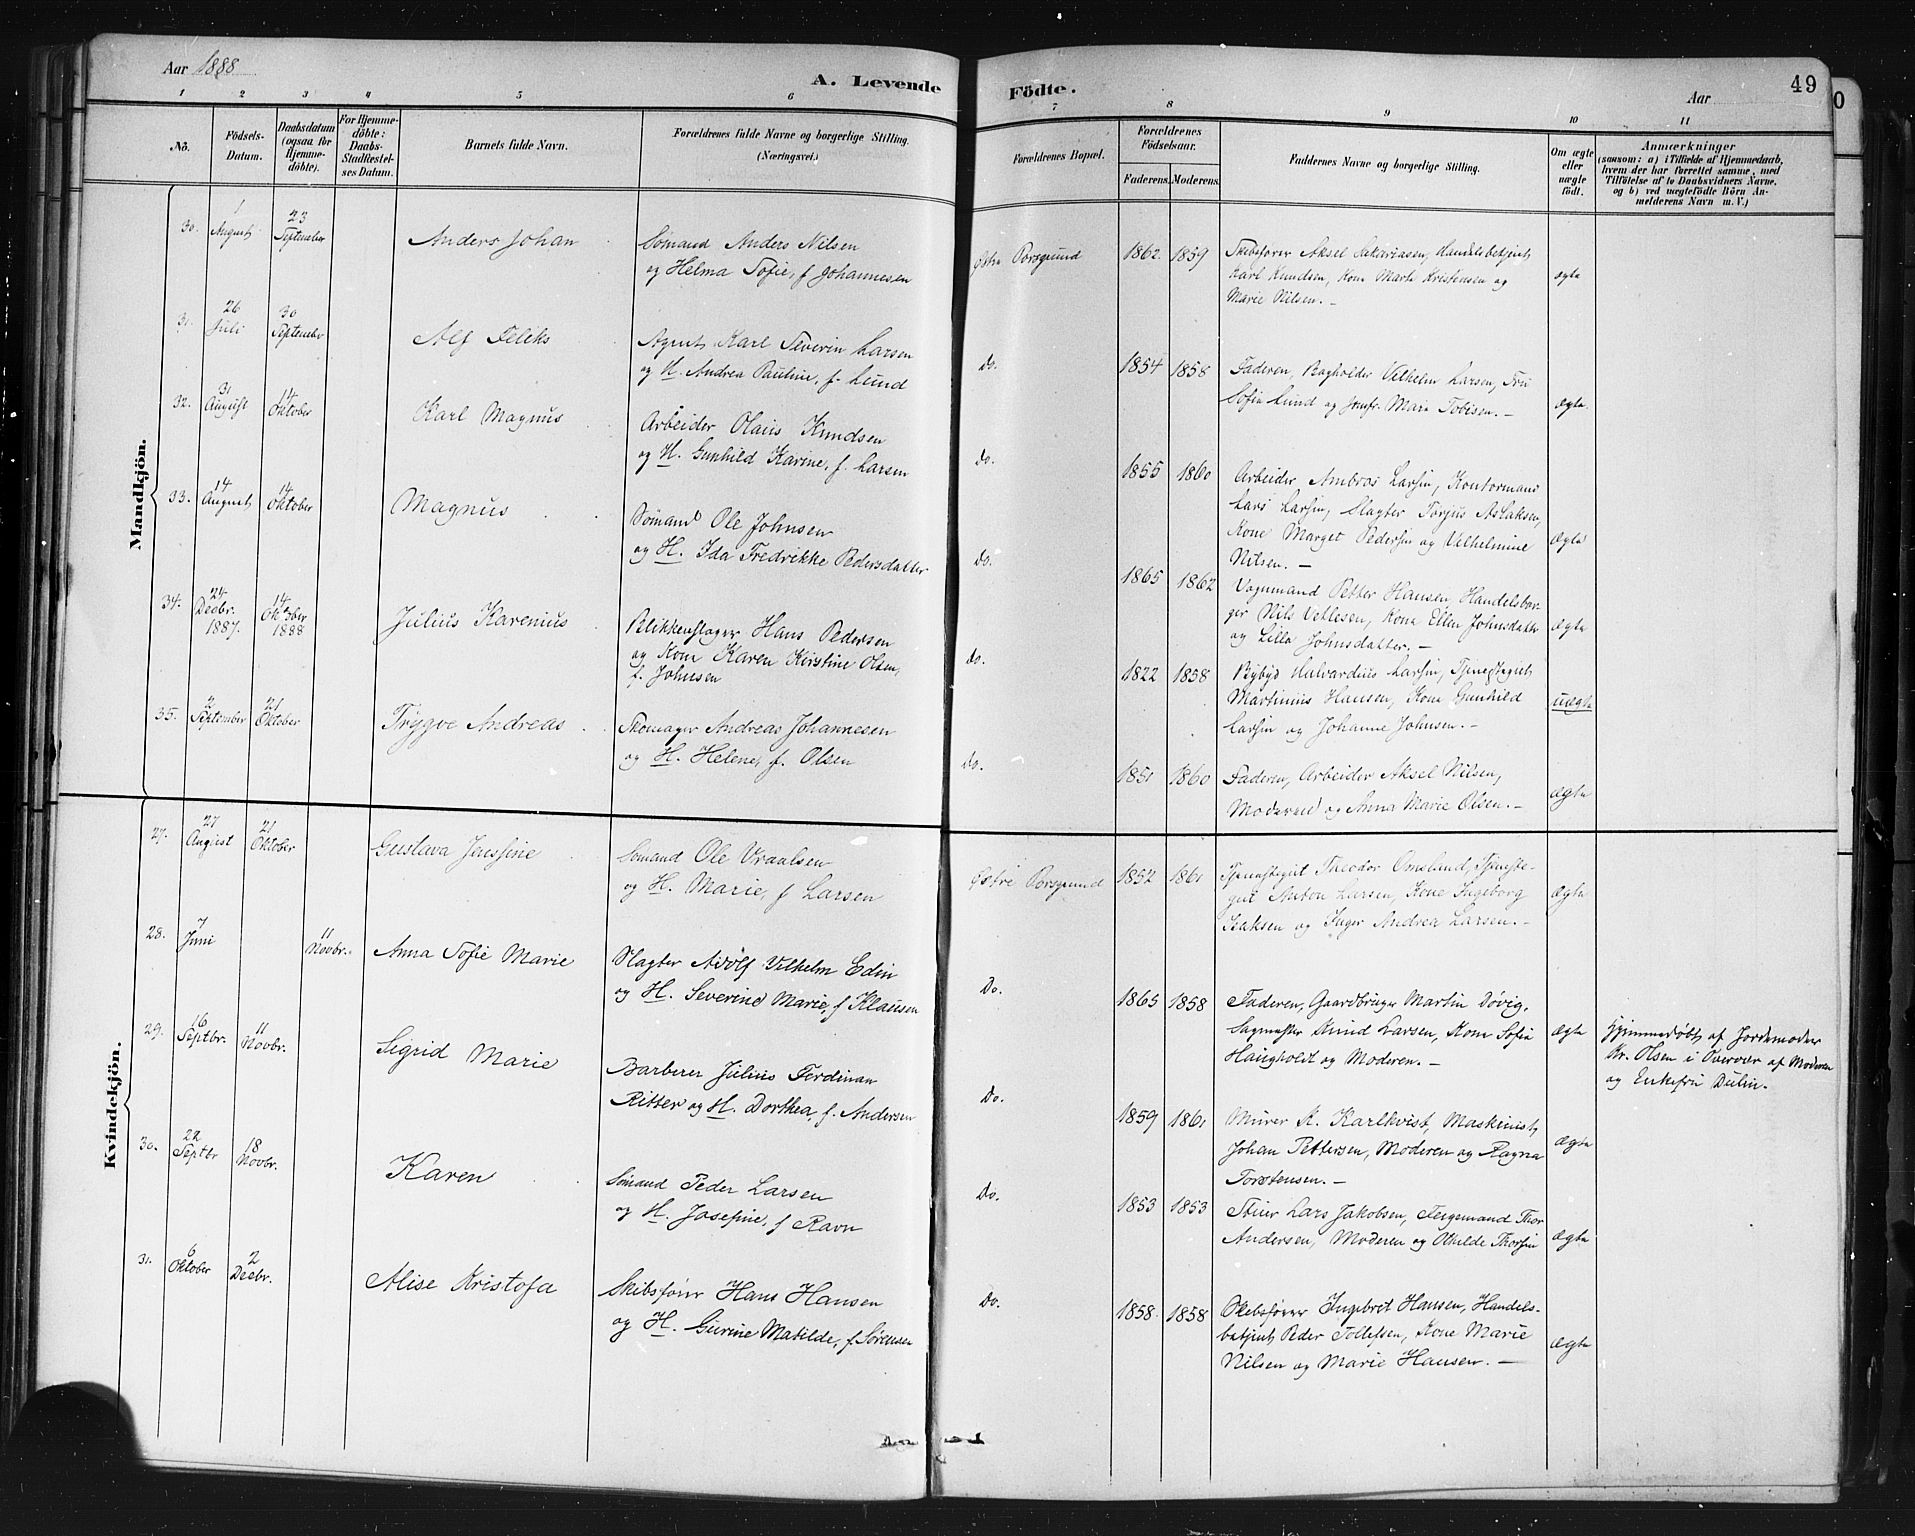 Aar 1888
A. Levende
Födte.
Aar
49
1 2 3 4 5 6 7 8 9 10 11
No.
Födsels-
Datum.
Daabsdatum
(ogsaa for
Hjemme-
döbte).
For Hjemme-
döbte:
Daabs-
Stadfæstel-
ses Datum.
Barnets fulde Navn.
Forældrenes fulde Navne og borgerlige Stilling.
(Næringsvei.)
Forældrenes Bopæl.
Forældrenes
Födselsaar.
Faderens. Moderens.
Faddernes Navne og borgerlige Stilling.
Om ægte
eller
uægte
födt.
Anmærkninger
(saasom: a) i Tilfælde af Hjemmedaab,
hvem der har forrettet samme, med
Tilföielse af to Daabsvidners Navne,
og b) ved uægtefödte Börn An-
melderens Navn m. V.)
Mandkjön.
30. 1 August 23 September Anders Johan
Sømand Anders Nilsen
og Helma Sofie, f Johannesen
Østre Porsgrund 1862 1859
Skibsfører Aksel Sakariasen, Handelsbetjent
Karl Knudsen, Kone Marte Kristensen og
Marie Nilsen. —
ægte
31. 26 Juli 30 September Alf Feleks
Agent Karl Severin Larsen
og H. Andrea Pauline, f. Lund
Do. 1854 1858
Faderen, Bogholder Vilhelm Larsen, Fru
Sofie Lund og Jomfr. Marie Tobisen. —
ægte
32. 31 August 14 Oktober Karl Magnus
Arbeider Olaus Knudsen
og H. Gunhild Karine, f. Larsen
Do. 1855 1860
Arbeider Ambros Larsen, Kontormand
Lars Larsen, Slagter Torjus Aslaksen,
Kone Marget Pedersen og Vilhelmine
Nilsen. —
ægte
33. 14 August 14 Oktober Magnus
Sømand Ole Johnsen
og H. Ida Fredrikke Pedersdatter
Do. 1865 1862
Vognmand Petter Hansen, Handelsbor-
ger Nils Vetlesen, Kone Ellen Johnsdatter
og Lilla Johnsdatter. —
ægte
34. 24 Decbr. 1887. 14 Oktober 1888 Julius Karenius
Blikkenslager Hans Pedersen
og Kone Karen Kirstine Olsen,
f. Johnsen
Do. 1822 1858
Bybud Halvardius Larsen, Tjenestegut
Martinius Hansen, Kone Gunhild
Larsen og Johanne Johnsen. —
uægte
35. 2 September 21 Oktober Trygve Andreas
Skomager Andreas Johannesen
og H. Helene, f. Olsen
Do. 1851 1860
Faderen, Arbeider Aksel Nilsen,
Moderen og Anna Marie Olsen. —
ægte
Kvindekjön.
27. 27 August 21 Oktober Gustava Jenssine
Sømand Ole Vraalsen
og H. Marie, f Larsen
Østre Porsgrund 1852 1861
Tjenestegut Theodor Omslund, Tjeneste-
gut Anton Larsen, Kone Ingeborg
Isaksen og Inger Andrea Larsen. —
ægte
28. 7 Juni 11 Novbr. Anna Sofie Marie
Slagter Adolf Vilhelm Edin
og H. Severine Marie, f Klausen
Do. 1865 1858
Faderen, Gaardbruger Martin Døvig,
Sagmester Knud Larsen, Kone Sofie
Haugholdt og Moderen. —
ægte
Hjemmedøbt af Jordemoder
Kr. Olsen i Overvær af Moderen
og Enkefru Dulin.
29. 16 Septbr. 11 Novbr. Sigrid Marie
Barberer Julius Ferdinan
Ritter og H. Dorthea, f. Andersen
Do. 1859 1861
Murer K. Karlkvist, Maskinist
Johan Pettersen, Moderen og Ragna
Torstensen. —
ægte
30. 22 Septbr 18 Novbr. Karen
Sømand Peder Larsen
og H. Josefine, f Ravn
Do. 1853 1853
Stuer Lars Jakobsen, Fergemand Thor
Andersen, Moderen og Othilde Thorsen
ægte
31. 6 Oktober 2 Decbr. Alise Kristofa
Skibsfører Hans Hansen
og H. Gurine Matilde, f Sørensen
Do. 1858 1858
Skibsfører Ingebret Hansen, Handels-
betjent Peder Tollefsen, Kone Marie
Nilsen og Marie Hansen. —
ægte